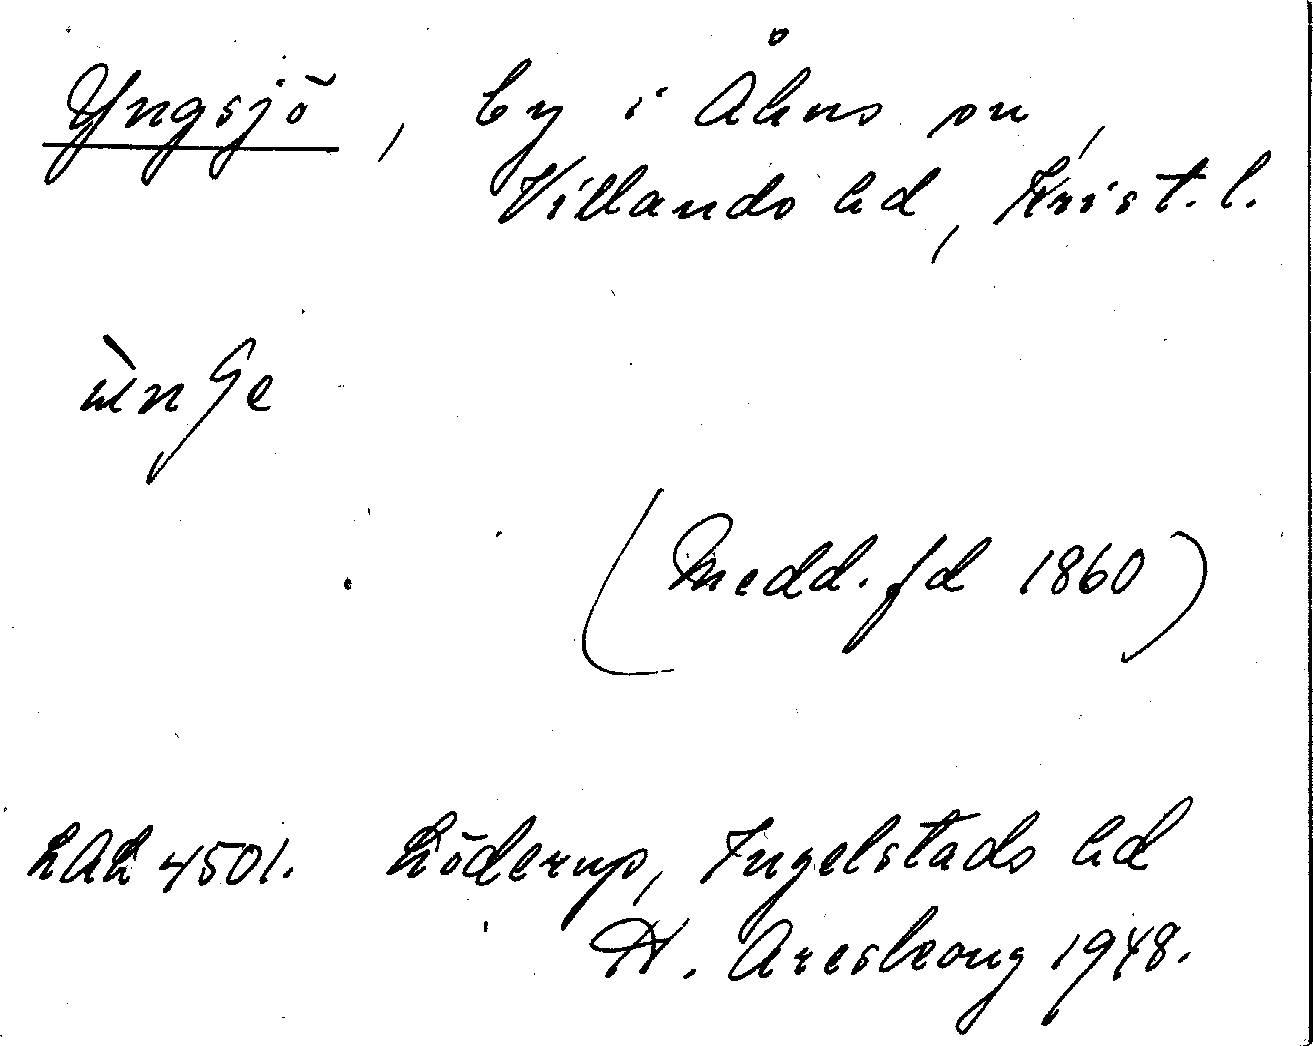 Yngsjö, by i Åhus sn,
Villands hd, Krist. l.
(Medd. fd 1860)
LAL 4501. Löderup, Ingelstads hd
Areskoug 1948.